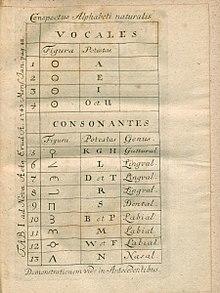 Conspectus Alphabeti naturalis
VOCALES
Figura Potestas
1 A
2 E
3 I
4 O et U
CONSONANTES
Figura Potestas Genus
5 K G H Guttural
6 L Lingval
7 D et T Lingval
8 R Lingval
9 S Dental.
10 B et P Labial
11 M Labial
12 W et F Labial
13 N Nasal
Demonstrationem vide in Antecedentibus.
TAB I ad Nova